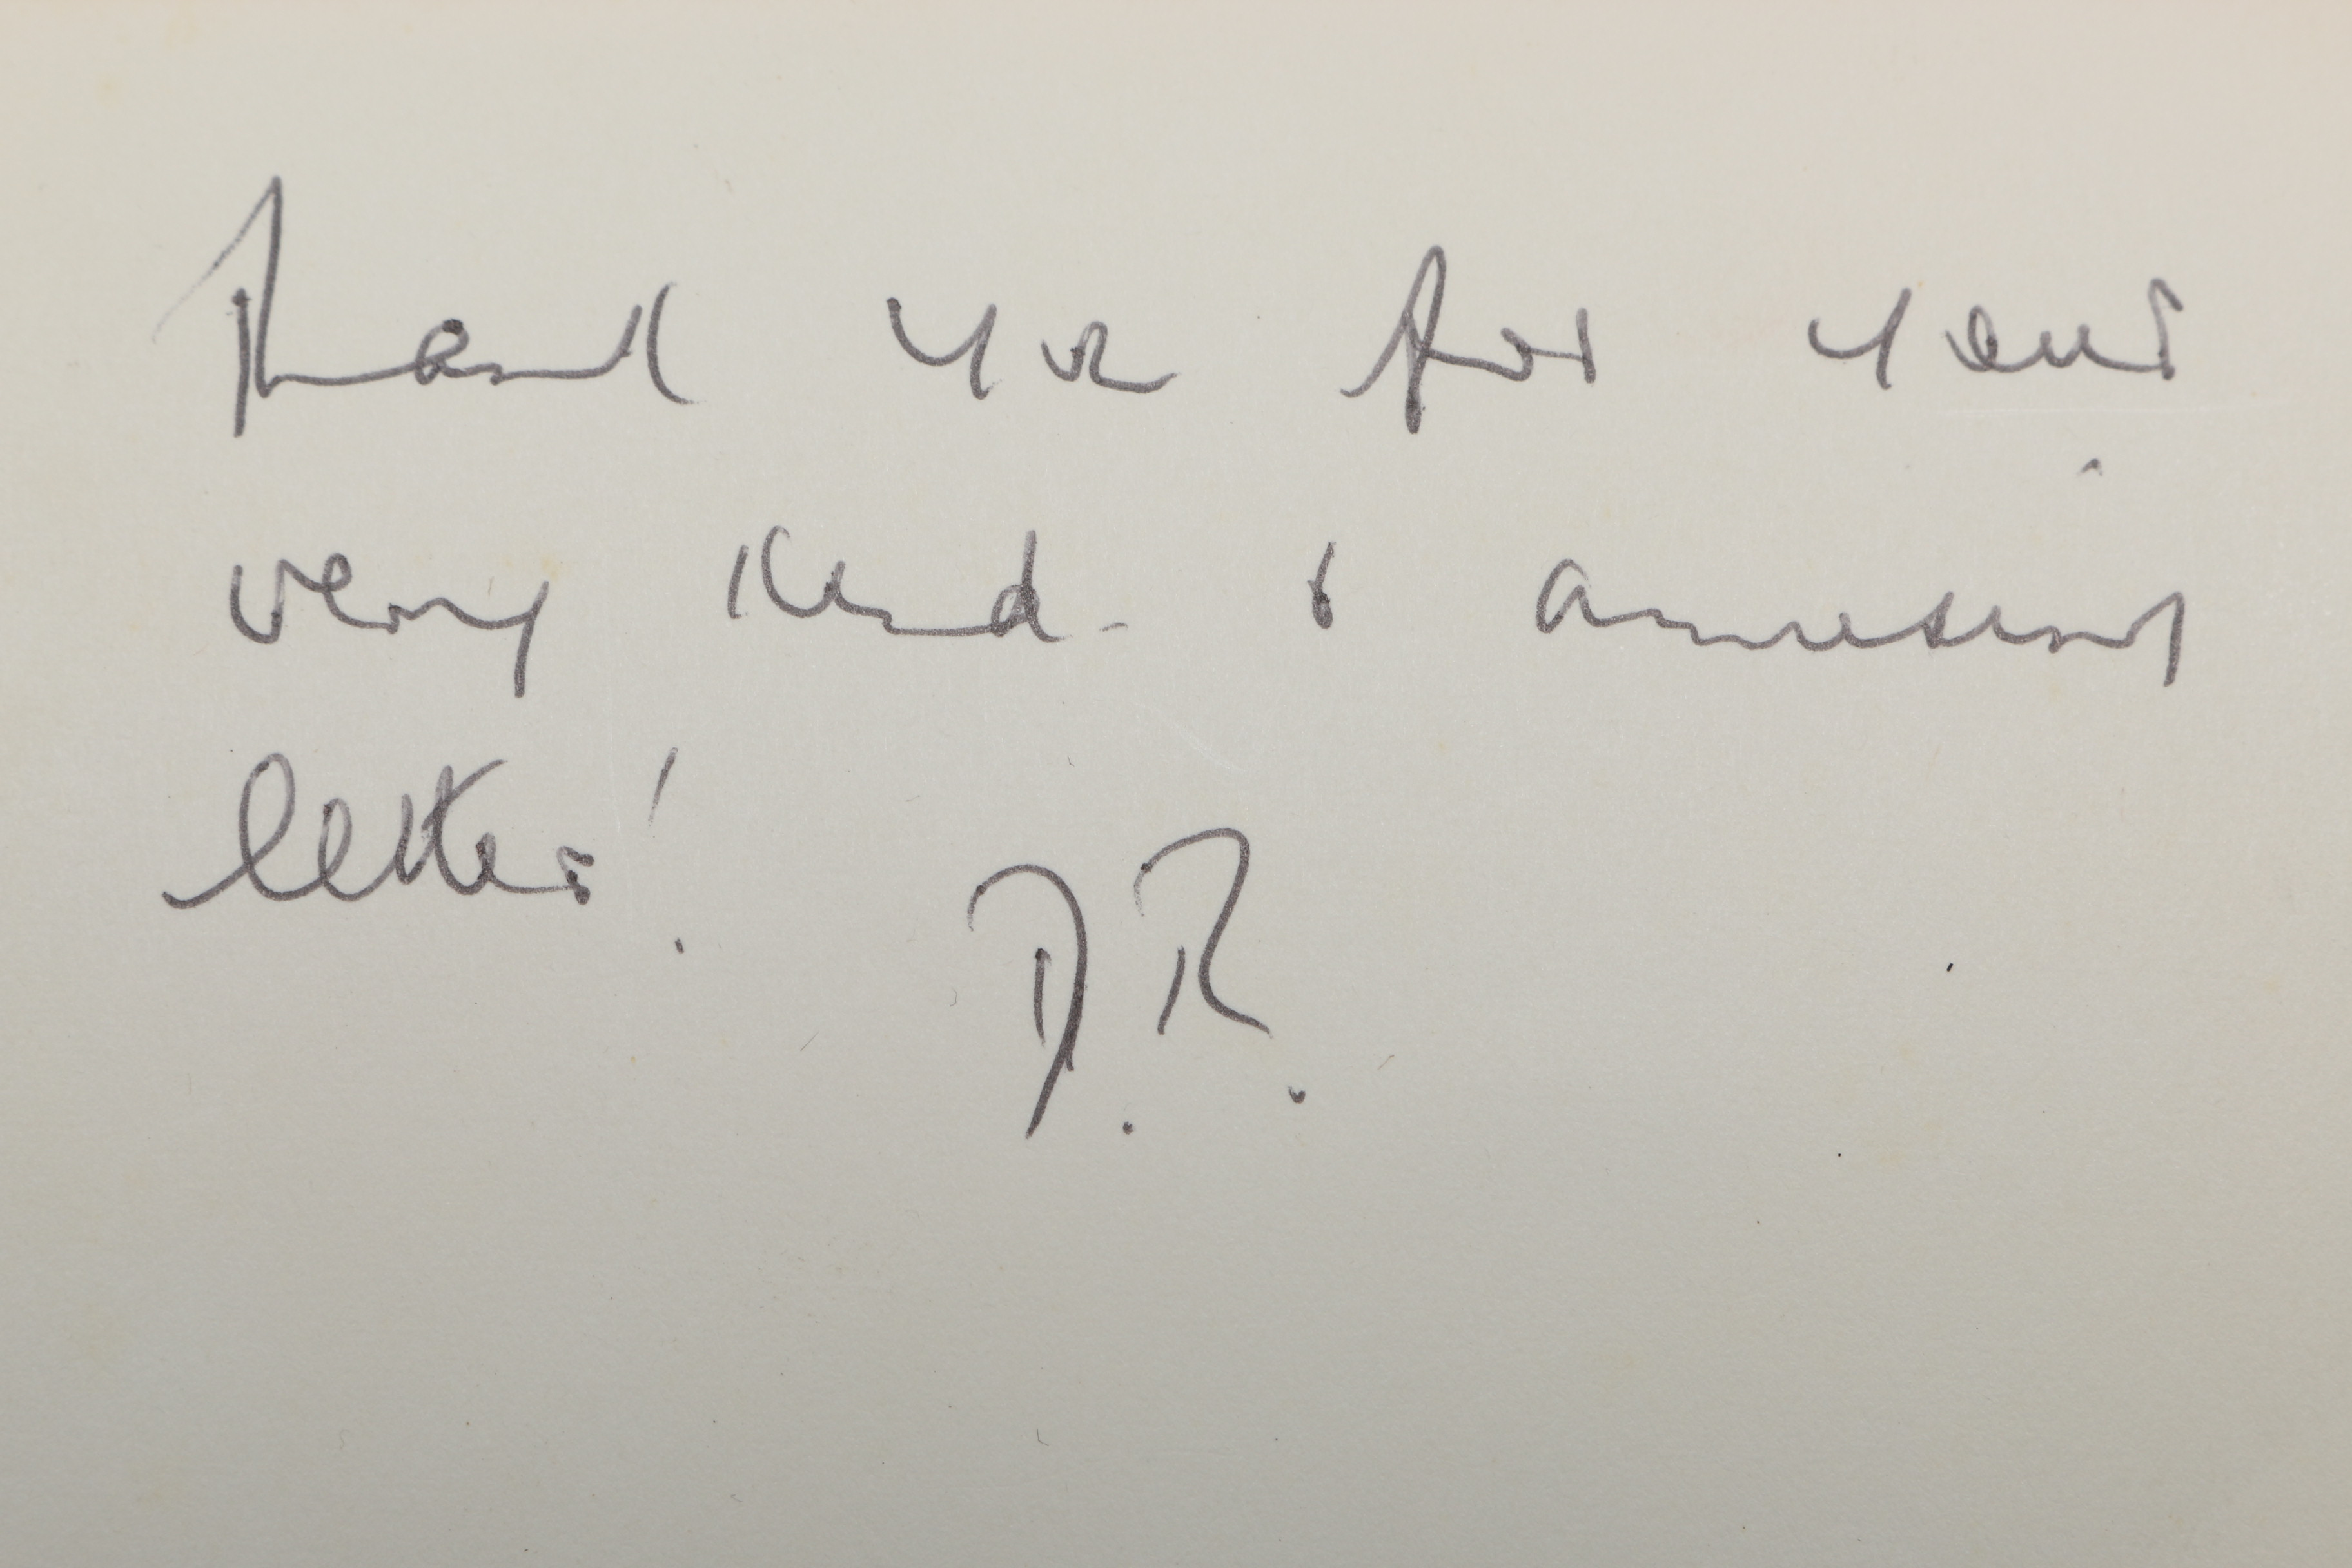 Thank you for your
very kind & amusing
letter!
D.R.